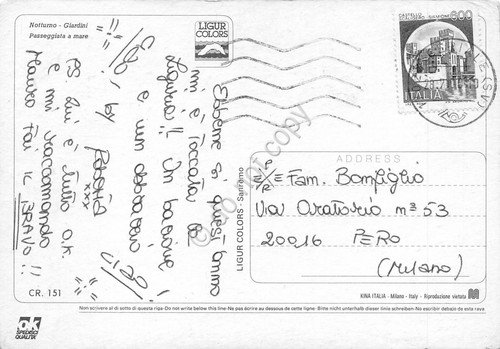 Notturno - Giardini
Passeggiata a mare
LIGUR
COLORS
600
ITALIA
Ebbene sì quest'anno
mi è toccata la
Liguria!! Un bacione!
e un abbraccio
CIAO
!! CIAO! by ROBERTA !!
xxx
PS Lui è tutto O.K.
e mi raccomando
Mauro fai il BRAVO!!
ADDRESS
Fam. Bonfiglio
Via Oratorio n° 53
20016 PERO
(Milano)
LIGUR COLORS - Sanremo
do not copy
CR. 151
KINA ITALIA - Milano - Italy - Riproduzione vietata
Non scrivere al di sotto di questa riga-Do not write below this line-Ne pas écrire au dessous de cette ligne-Bitte nicht unterhalb dieser linie schreiben-No escribir debajo de esta raya
ok
SPEDISCI
QUALITÀ